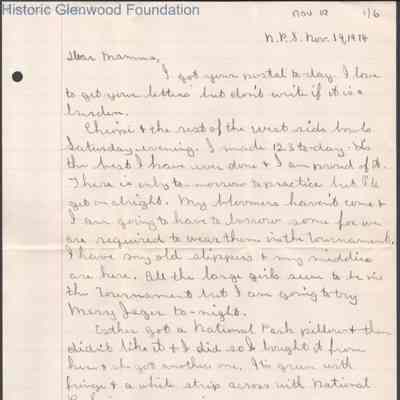 Historic Glenwood Foundation
Nov 12 1/6
N.P.S. Nov. 19, 1914
Dear Mamma,
I got your postal to-day. I love
to get your letters but don't write if it is a
burden.
& the rest of the west side bowls
Saturday evening. I made 123 to-day. It's
the best I have ever done & I am proud of it.
There is only to-morrow to practice but I'll
get on alright. My bloomers haven't come &
I am going to have to borrow some for we
are required to wear them in the Tournament.
I have my old slippers & my middies
are here. All the large girls seem to be in
the Tournament but I am going to try
Merry Jager to-night.
Esther got a National Park pillow & then
didn't like it & I did so I bought it from
her & she got another one. It's green with
fringe & a white strip across with National